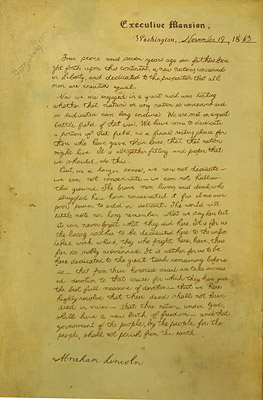 Executive Mansion,
Washington, November 19, 1863
Four score and seven years ago our fathers brou
ght forth upon this continent, a new nation, conceived
in Liberty, and dedicated to the proposition that all
men are created equal.
Now we are engaged in a great civil war, testing
whether that nation or any nation so conceived and
so dedicated can long endure. We are met on a great
battle field of that war. We have come to dedicate
a portion of that field, as a final resting place for
those who here gave their lives that that nation
might live. It is altogether fitting and proper that
we should do this.
But, in a larger sense, we can not dedicate—
we can not consecrate— we can not hallow—
this ground. The brave men, living and dead, who
struggled here have consecrated it far above our
poor power to add or detract. The world will
little note nor long remember what we say here but
it can never forget what they did here. It is for us
the living rather to be dedicated here to the unfin
ished work which they who fought here have thus
far so nobly advanced. It is rather for us to be
here dedicated to the great task remaining before
us— that from these honored dead we take increas
ed devotion to that cause for which they here gave
the last full measure of devotion— that we here
highly resolve that these dead shall not have
died in vain— that this nation, under God,
shall have a new birth of freedom— and that
government of the people, by the people, for the
people, shall not perish from the earth.
Abraham Lincoln